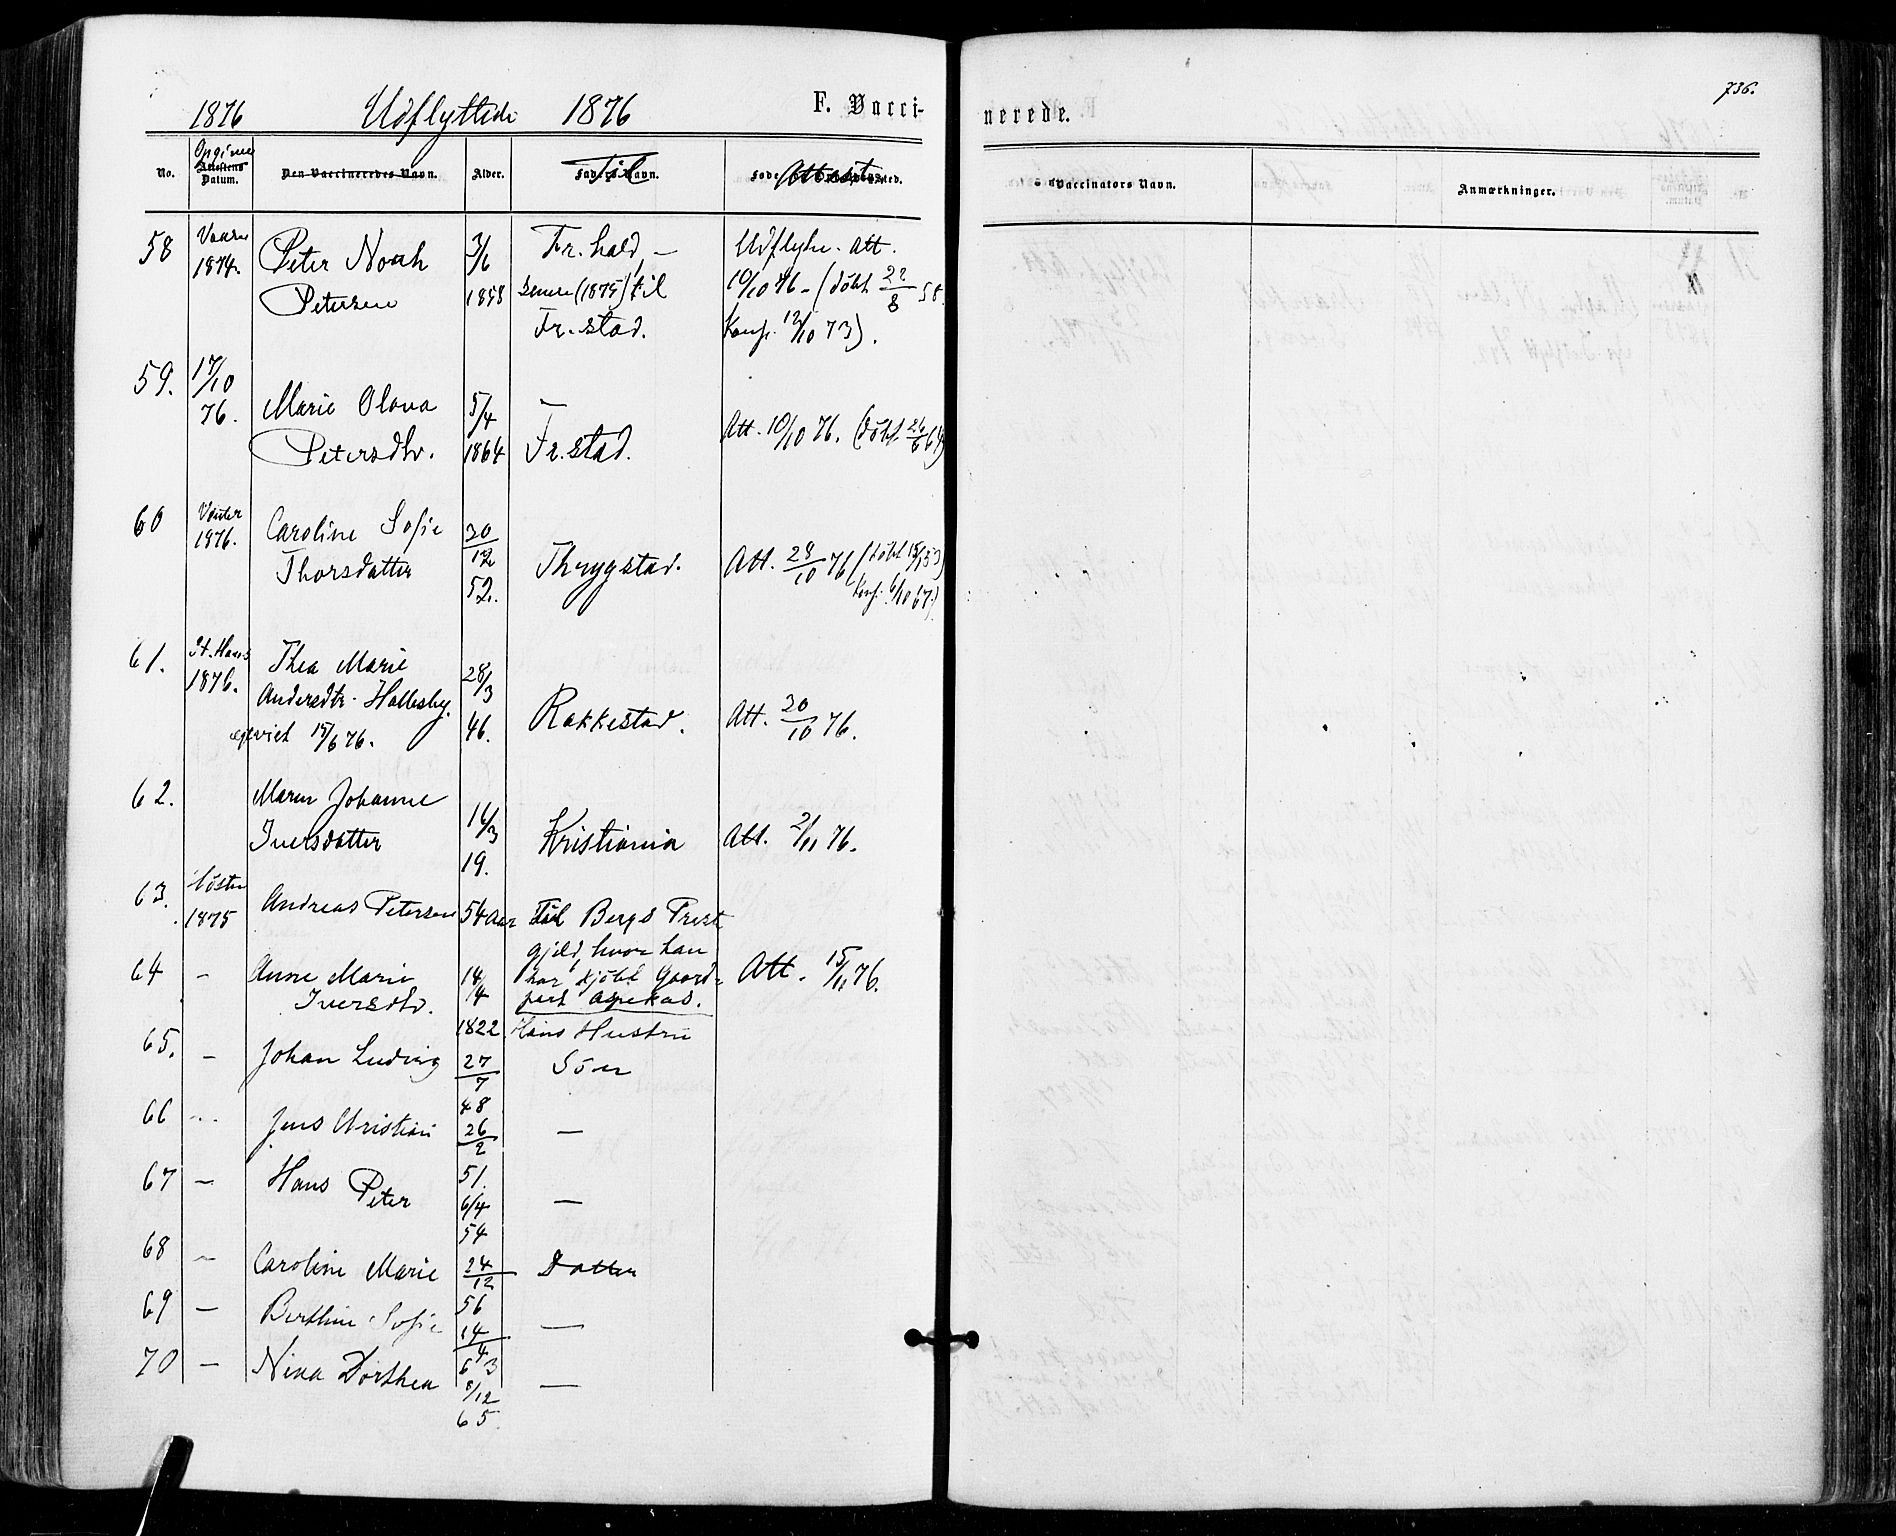 736.
1876 Udflyttede 1876 F. Vacci-
nerede.
No. Attestens Datum. Den Vaccineredes Navn. Alder. Til Attest
Vaccinators Navn. Anmærkninger.
58 1874. Peter Noah 3/6 Fr.hald, – Udflytn. Att.
Petersen 1858 senere (1875) til 10/10 76 – (döbt 22/8 58.
Fr.stad. Konf. 12/10 73).
59. 17/10
76. Marie Olava 5/4 –
Petersdtr. 1864 Fr.stad. Att. 10/10 76. (döbt 26/6 64)
60 Vinter Caroline Sofie 20/12
1876. Thorsdatter 52. Thrygstad. Att. 28/10 76 (döbt
Konf. 6/10 67.)
61. St. Hans Thea Marie 28/3
1876. Andersdtr. Hallesby. 46. Rakkestad. Att. 20/10 76.
egteviet 15/6 76.
62. Maren Johanne 16/3
Iversdatter 19. Kristiania Att. 2/11 76.
63. Hösten
1875 Andreas Petersen 54 Aar Til Bergs Prest
gjeld, hvor han
64 – Anne Marie 14/4 har kjöbt Gaard- Att. 15/11 76.
Iversdtr. 1822. Hans Hustru
65. – Johan Ludvig 27/7 48 Sön
66 – Jens Kristian 26/2 51. –
67 – Hans Peter 6/4 54 –
68 – Caroline Marie 24/12 56 Datter
69 – Berthine Sofie 14/4 63 –
70 – Nina Dorthea 8/12 65. –